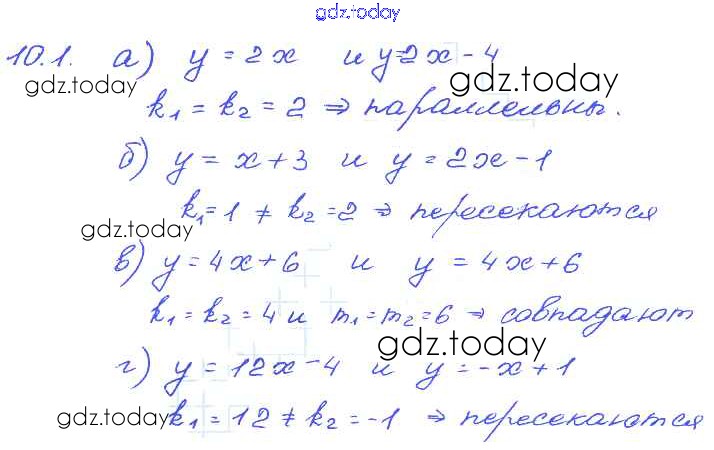 gdz.today
10.1. а) y = 2x и y=2x - 4
gdz.today gdz.today
k₁ = k₂ = 2 ⇒ параллельны.
б) y = x + 3 и y = 2x - 1
k₁ = 1 ≠ k₂ = 2 ⇒ пересекаются
gdz.today
в) y = 4x + 6 и y = 4x + 6
k₁ = k₂ = 4 и m₁ = m₂ = 6 ⇒ совпадают
gdz.today
г) y = 12x - 4 и y = -x + 1
gdz.today k₁ = 12 ≠ k₂ = -1 ⇒ пересекаются